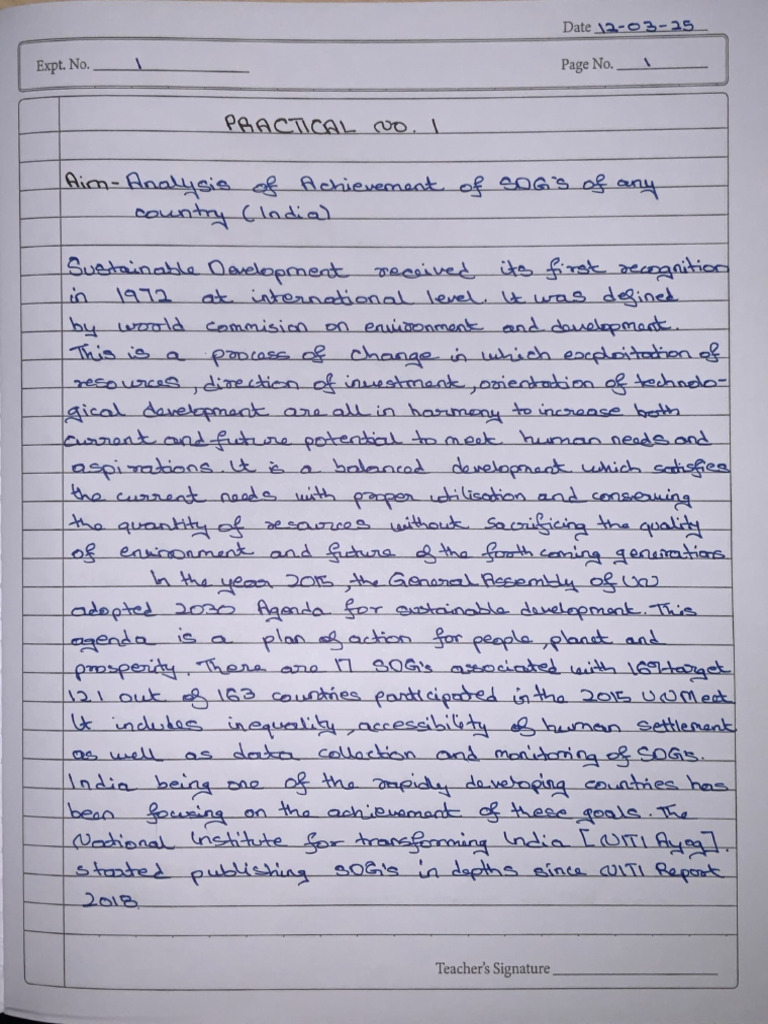 Date 12-03-25
Expt. No. 1
Page No. 1
PRACTICAL NO. 1
Aim- Analysis of Achievement of SDG's of any
country (India)
Sustainable Development received its first recognition
in 1972 at international level. It was defined
by world commision on environment and development.
This is a process of change in which exploitation of
resources, direction of investment, orientation of technolo-
gical development are all in harmony to increase both
current and future potential to meet human needs and
aspirations. It is a balanced development which satisfies
the current needs with proper utilisation and conserving
the quantity of resources without sacrificing the quality
of environment and future of the forth coming generations
In the year 2015, the General Assembly of UN
adopted 2030 Agenda for sustainable development. This
agenda is a plan of action for people, planet and
prosperity. There are 17 SDG's associated with 169 target
121 out of 163 countries participated in the 2015 UN Meet
It includes inequality, accessibility of human settlement
as well as data collection and monitoring of SDGs.
India being one of the rapidly developing countries has
been focusing on the achievement of these goals. The
National Institute for transforming India [NITI Ayog].
started publishing SDG's in depths since NITI Report
2018.
Teacher's Signature